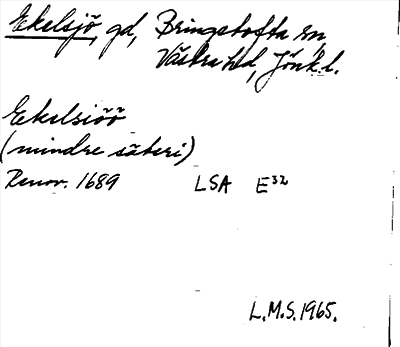 Ekelsjö, gd, Bringetofta sn,
Västra hd, Jönk. l.
Ekelsiöö
(mindre säteri)
Renov. 1689 LSA E32
L.M.S. 1965.